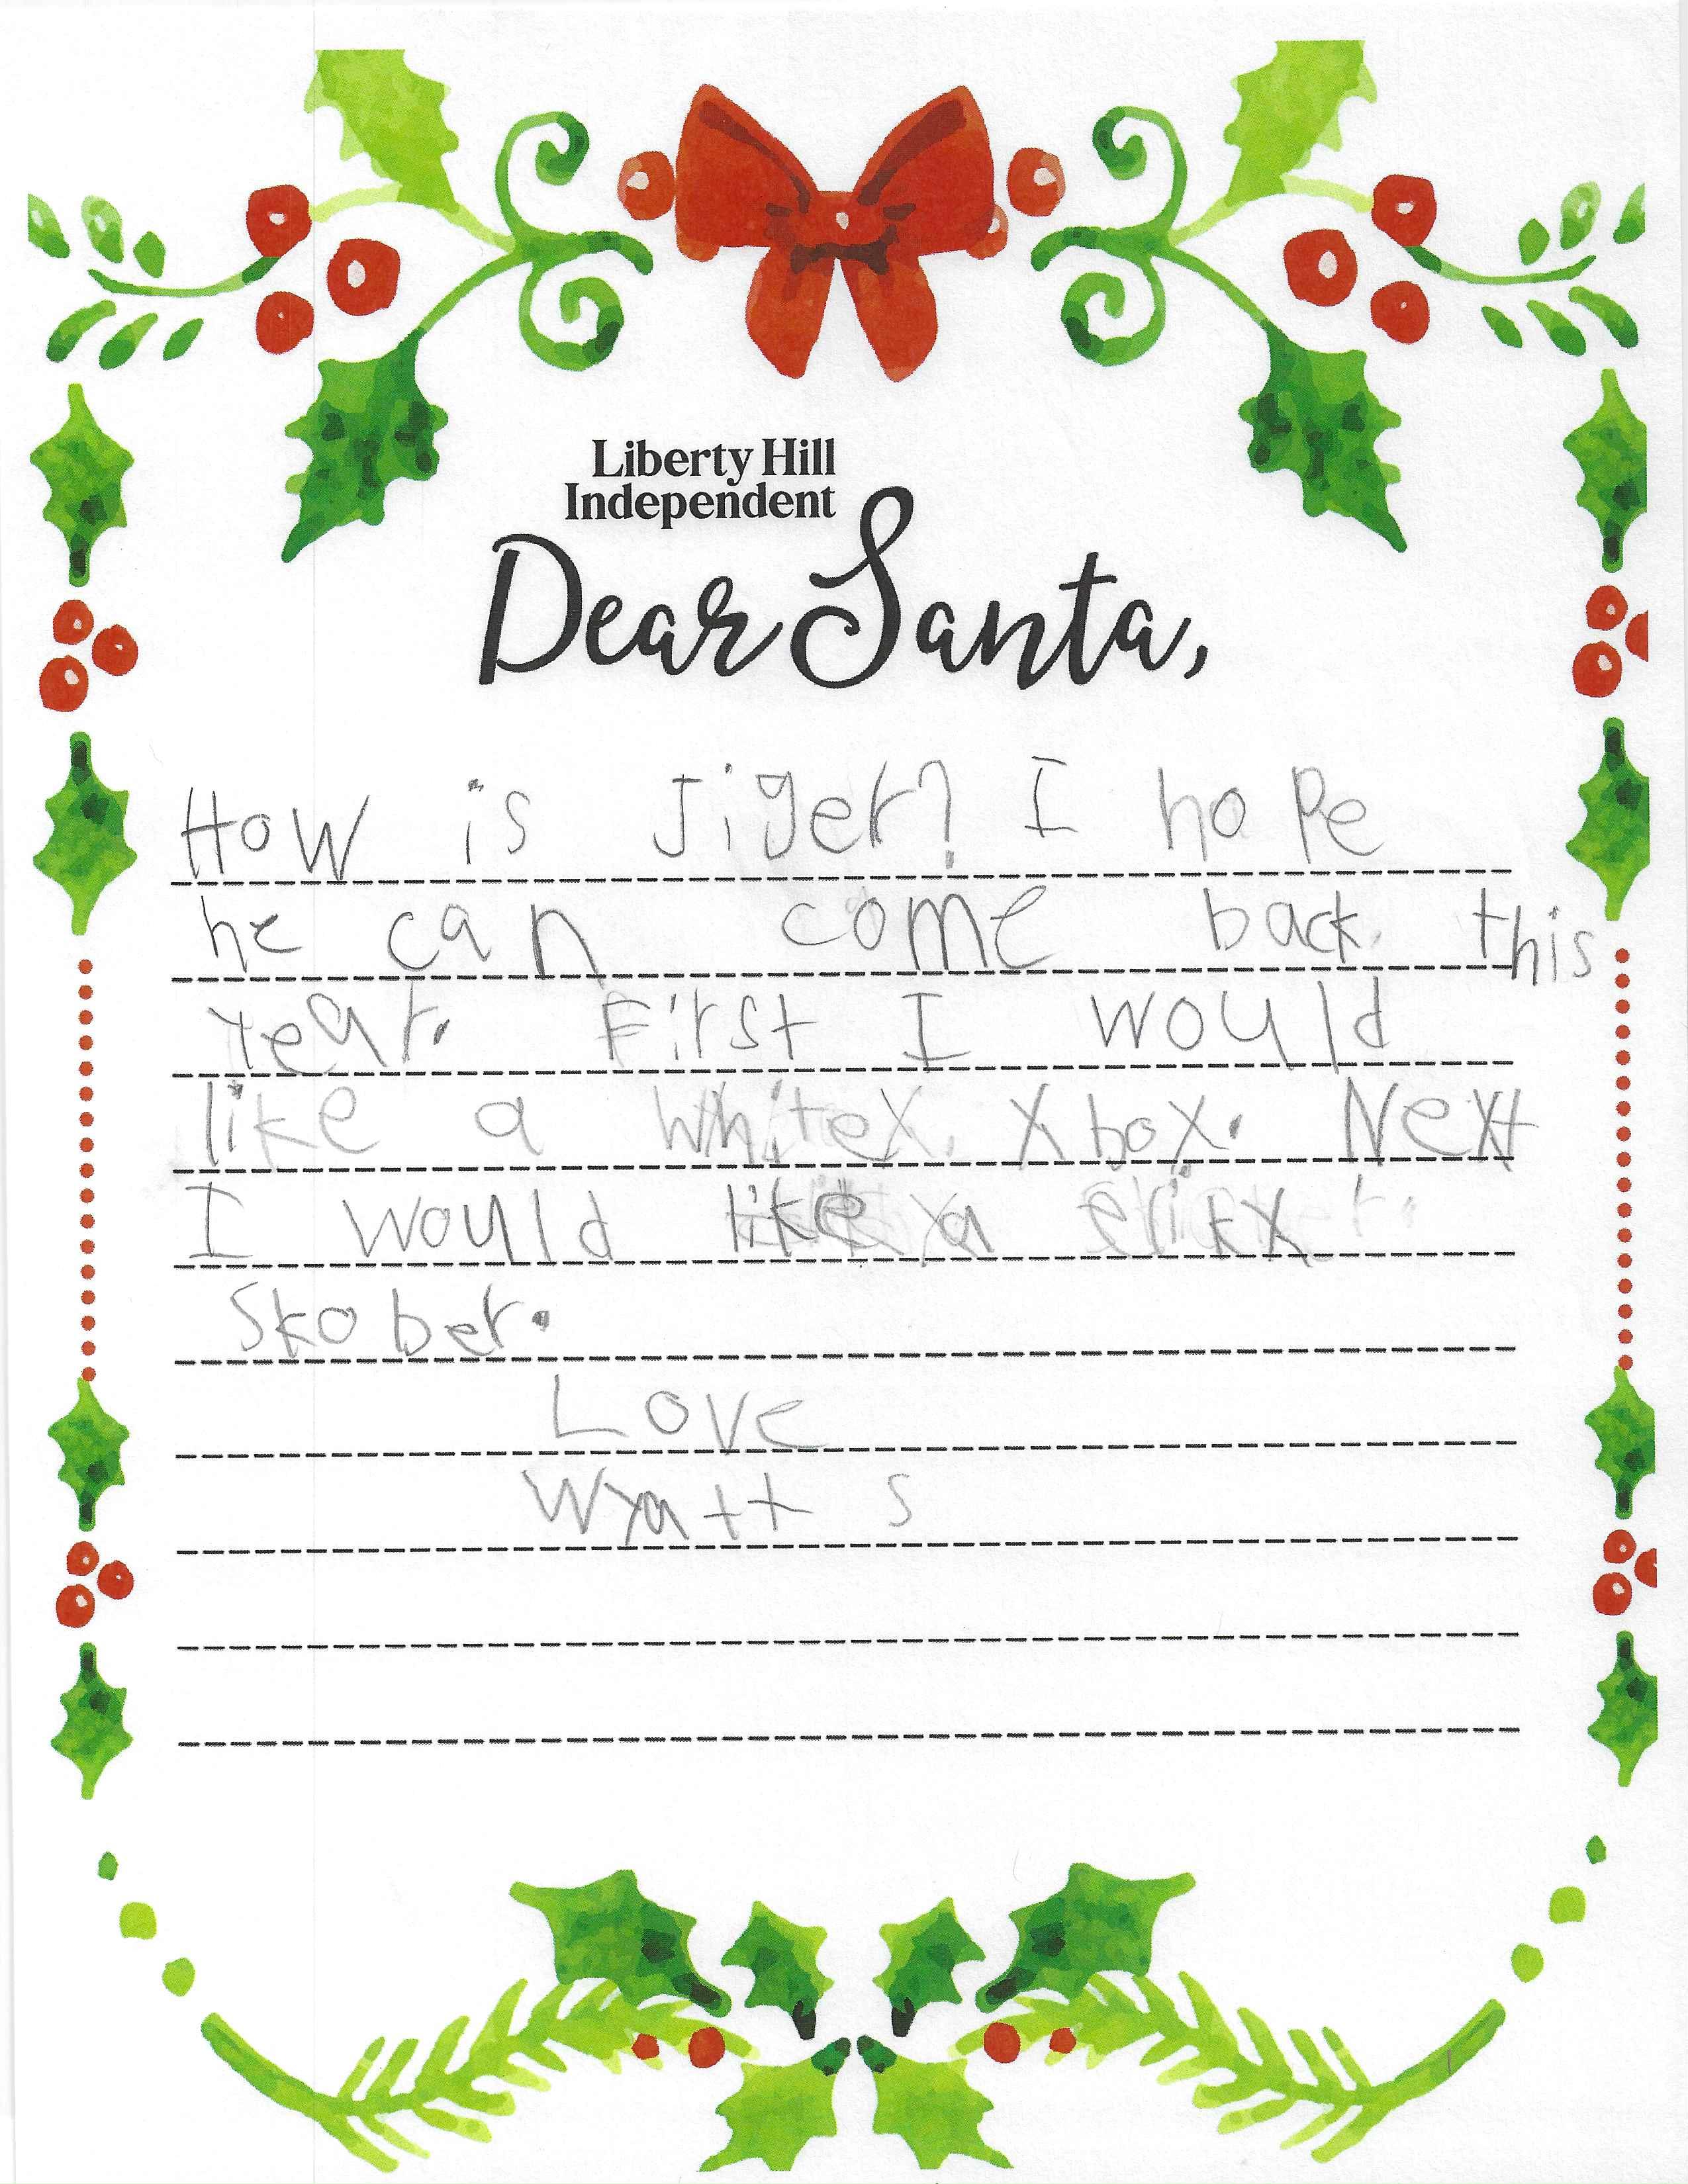 Liberty Hill
Independent
Dear Santa,
How is Jiger? I hope
he can come back this
year. First I would
like a white Xbox. Next
I would like a
Skober.
Love
Wyatt S